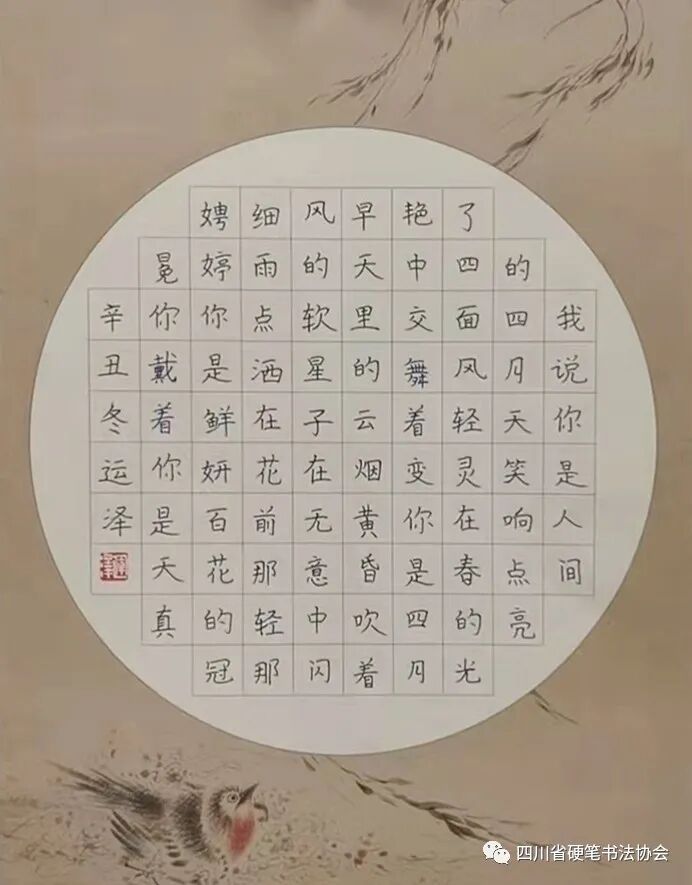 我说你是人间
的四月天笑响点亮
了四面风轻灵在春的光
艳中交舞着变你是四月
早天里的云烟黄昏吹着
风的软星子在无意中闪
细雨点洒在花前那轻那
娉婷你是鲜妍百花的冠
冕你戴着你是天真
辛丑冬运泽
四川省硬笔书法协会